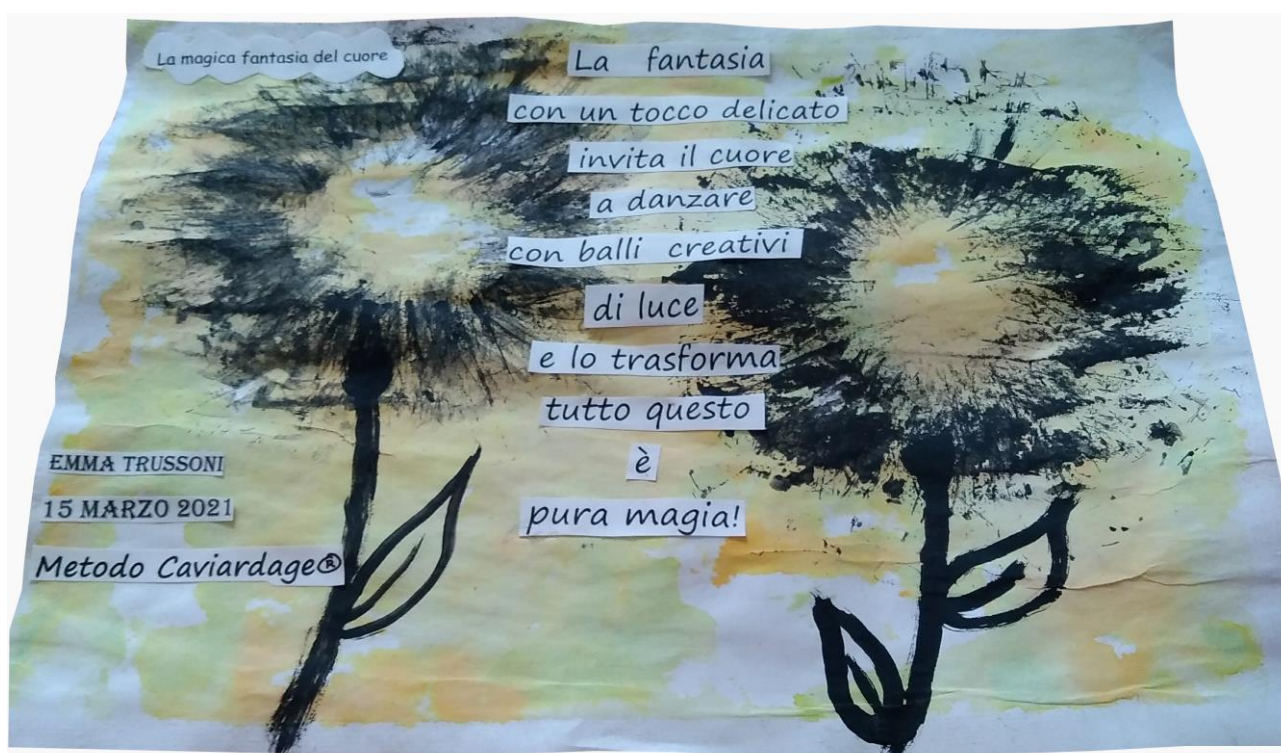 La magica fantasia del cuore
La fantasia
con un tocco delicato
invita il cuore
a danzare
con balli creativi
di luce
e lo trasforma
tutto questo
è
pura magia!
EMMA TRUSSONI
15 MARZO 2021
Metodo Caviardage®